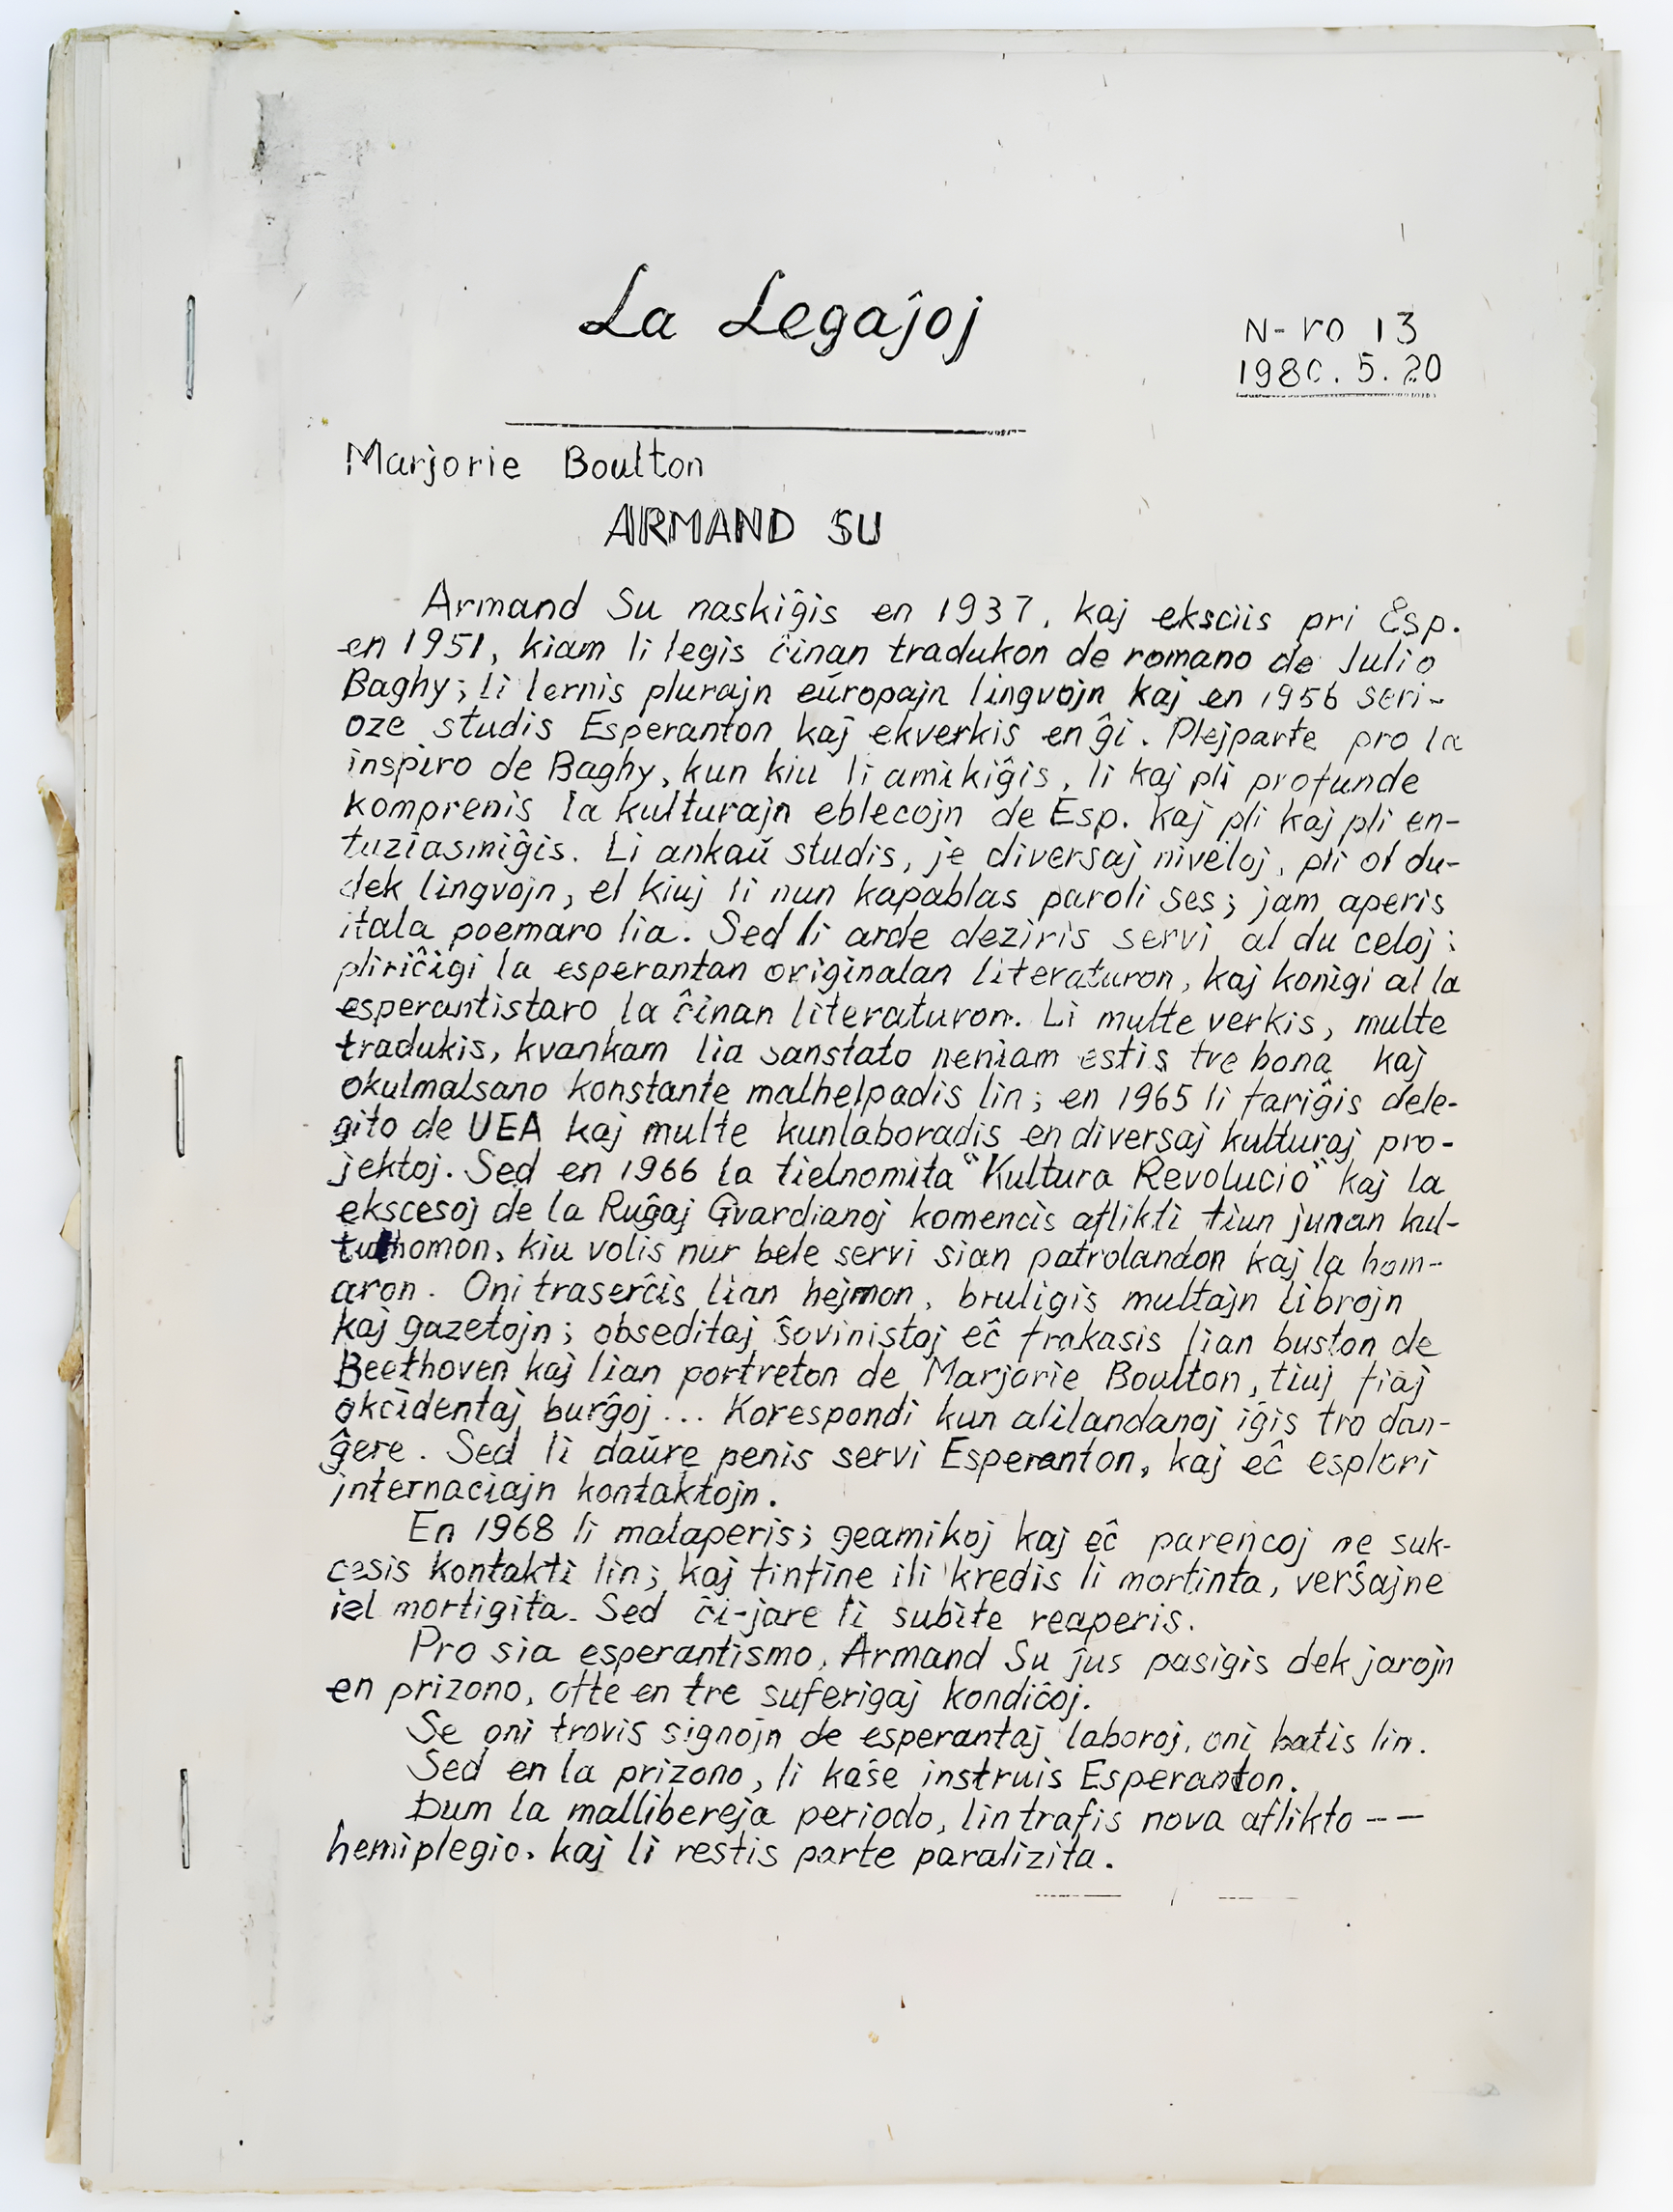 La Legaĵoj
N-ro 13
1980.5.20
Marjorie Boulton
ARMAND SU
Armand Su naskiĝis en 1937, kaj eksciis pri Esp.
en 1951, kiam li legis ĉinan tradukon de romano de Julio
Baghy; li lernis plurajn eŭropajn lingvojn kaj en 1956 seri-
oze studis Esperanton kaj ekverkis en ĝi. Plejparte pro la
inspiro de Baghy, kun kiu li amikiĝis, li kaj pli profunde
komprenis la kulturajn eblecojn de Esp. kaj pli kaj pli en-
tuziasmiĝis. Li ankaŭ studis, je diversaj niveloj, pli ol du-
dek lingvojn, el kiuj li nun kapablas paroli ses; jam aperis
itala poemaro lia. Sed li arde deziris servi al du celoj:
pliriĉigi la esperantan originalan literaturon, kaj konigi al la
esperantistaro la ĉinan literaturon. Li multe verkis, multe
tradukis, kvankam lia sanstato neniam estis tre bona kaj
okulmalsano konstante malhelpadis lin; en 1965 li fariĝis dele-
gito de UEA kaj multe kunlaboradis en diversaj kulturaj pro-
jektoj. Sed en 1966 la tielnomita "Kultura Revolucio" kaj la
ekscesoj de la Ruĝaj Gvardianoj komencis aflikti tiun junan kul-
turhomon, kiu volis nur bele servi sian patrolandon kaj la hom-
aron. Oni traserĉis lian hejmon, bruligis multajn librojn
kaj gazetojn; obseditaj ŝovinistoj eĉ frakasis lian buston de
Beethoven kaj lian portreton de Marjorie Boulton, tiuj fiaj
okcidentaj burĝoj... Korespondi kun alilandanoj iĝis tro dan-
ĝere. Sed li daŭre penis servi Esperanton, kaj eĉ esplori
internaciajn kontaktojn.
En 1968 li malaperis; geamikoj kaj eĉ parencoj ne suk-
cesis kontakti lin; kaj finfine ili kredis li mortinta, verŝajne
iel mortigita. Sed ĉi-jare li subite reaperis.
Pro sia esperantismo, Armand Su ĵus pasigis dek jarojn
en prizono, ofte en tre suferigaj kondiĉoj.
Se oni trovis signojn de esperantaj laboroj, oni batis lin.
Sed en la prizono, li kaŝe instruis Esperanton.
Dum la mallibereja periodo, lin trafis nova aflikto --
hemiplegio. kaj li restis parte paralizita.